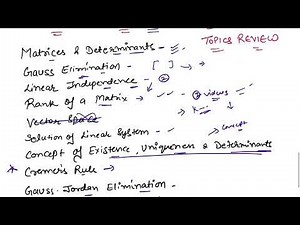 TOPICS REVIEW
Matrices & Determinants -
Gauss Elimination - [ ]
Linear Independence -
Rank of a Matrix -
2 videos
Vector Space
Solution of Linear System -
Concept
Concept of Existence, Uniqueness & Determinants
* Cremer's Rule -
Gauss-Jordan Elimination -